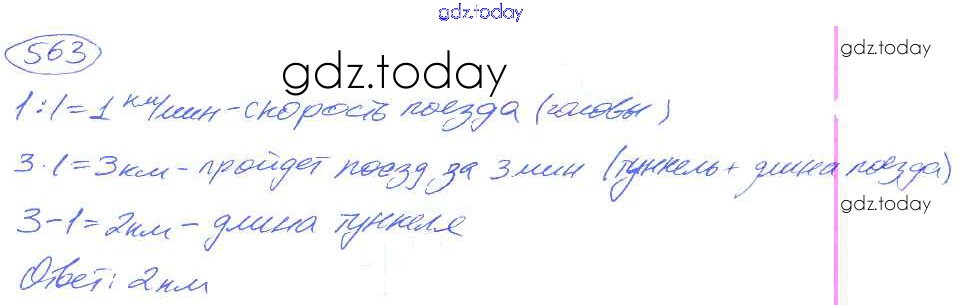 gdz.today
563
gdz.today
gdz.today
1:1=1 км/мин - скорость поезда (головы)
3·1=3км - пройдет поезд за 3мин (туннель + длина поезда)
gdz.today
3-1=2км - длина туннеля
Ответ: 2км